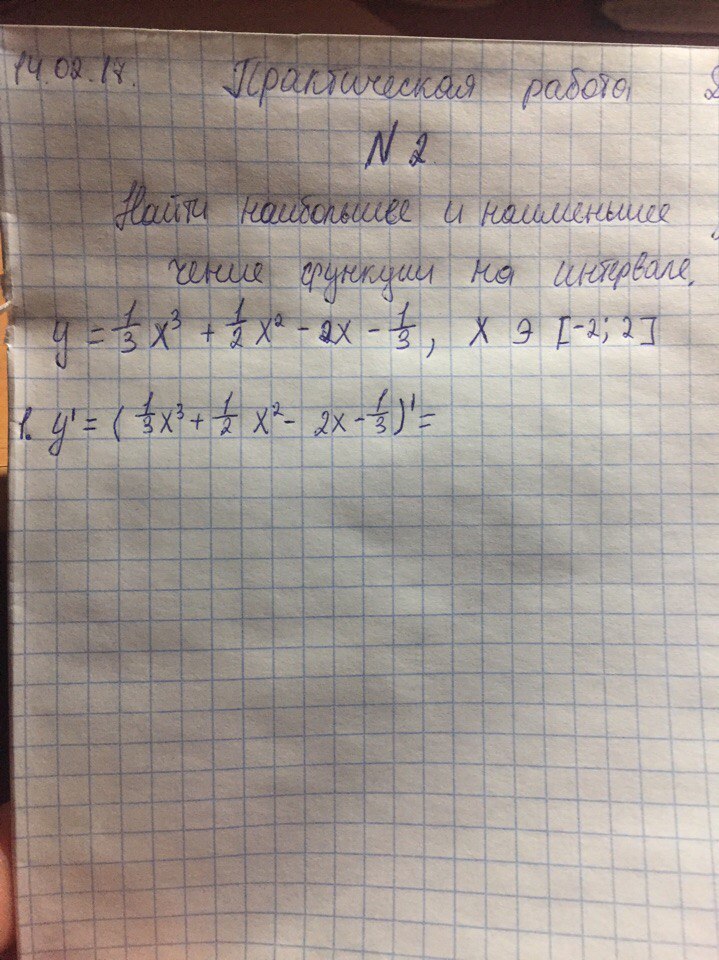 14.02.17. Практическая работа
N 2.
Найти наибольшее и наименьшее
чение функции на интервале.
y = 1/3 x³ + 1/2 x² - 2x - 1/3, x Э [-2; 2]
1. y' = (1/3 x³ + 1/2 x² - 2x - 1/3)' =